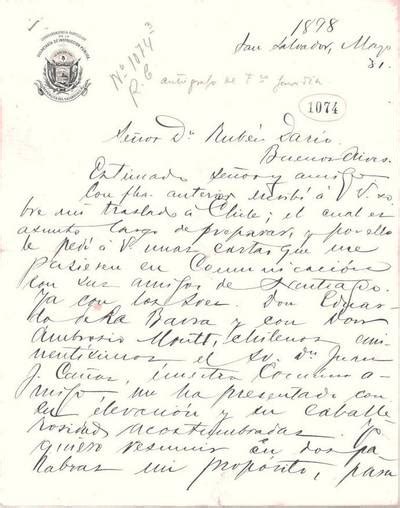 CORRESPONDENCIA PARTICULAR
DE LA
SECRETARIA DE INSTRUCCION PUBLICA
1898
San Salvador, Mayo
31.
Nº 1074-3
R. C
autógrafo de Fco
1074
Señor Dn Rubén Darío.
Buenos Aires.
Estimado señor y amigo
Con fha. anterior escribí á V. so
bre mi traslado á Chile; el cual es
asunto largo de preparar, y por ello
le pedí á V. unas cartas que me
pusiesen en Comunicación
con sus amigos de Santiago.
Ya con los Sres. Don Eduar
do de la Barra y con Don
Ambrosio Montt, chilenos emi
nentísimos el Sr. Dn Juan
J. Cañas, nuestro Común a-
migo me ha presentado con
su elevación y su caballe
rosidad acostumbradas. Yo
quiero resumir en dos pa-
labras mi propósito, para